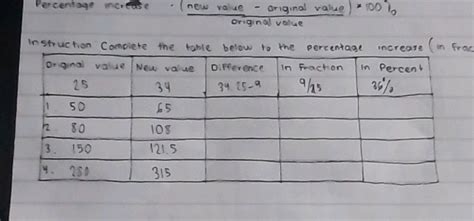 Percentage increase = (new value - original value) * 100 %
original value
Instruction Complete the table below to the percentage increase (in frac
Original value New value Difference In Fraction In Percent
25 34 34-25=9 9/25 36%
1 50 65
2. 80 108
3. 150 121.5
4. 250 315